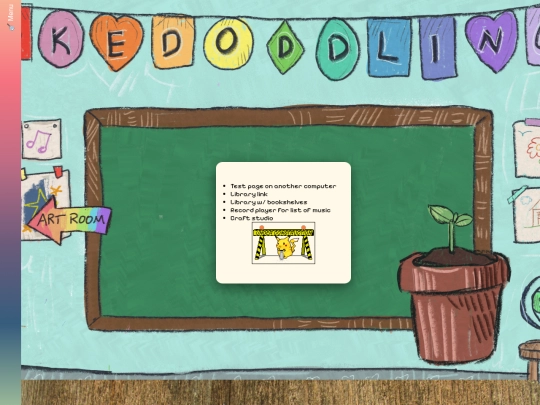 Menu
KEDODDLING
ART ROOM
Test page on another computer
Library link
Library w/ bookshelves
Record player for list of music
Craft studio
UNDER CONSTRUCTION